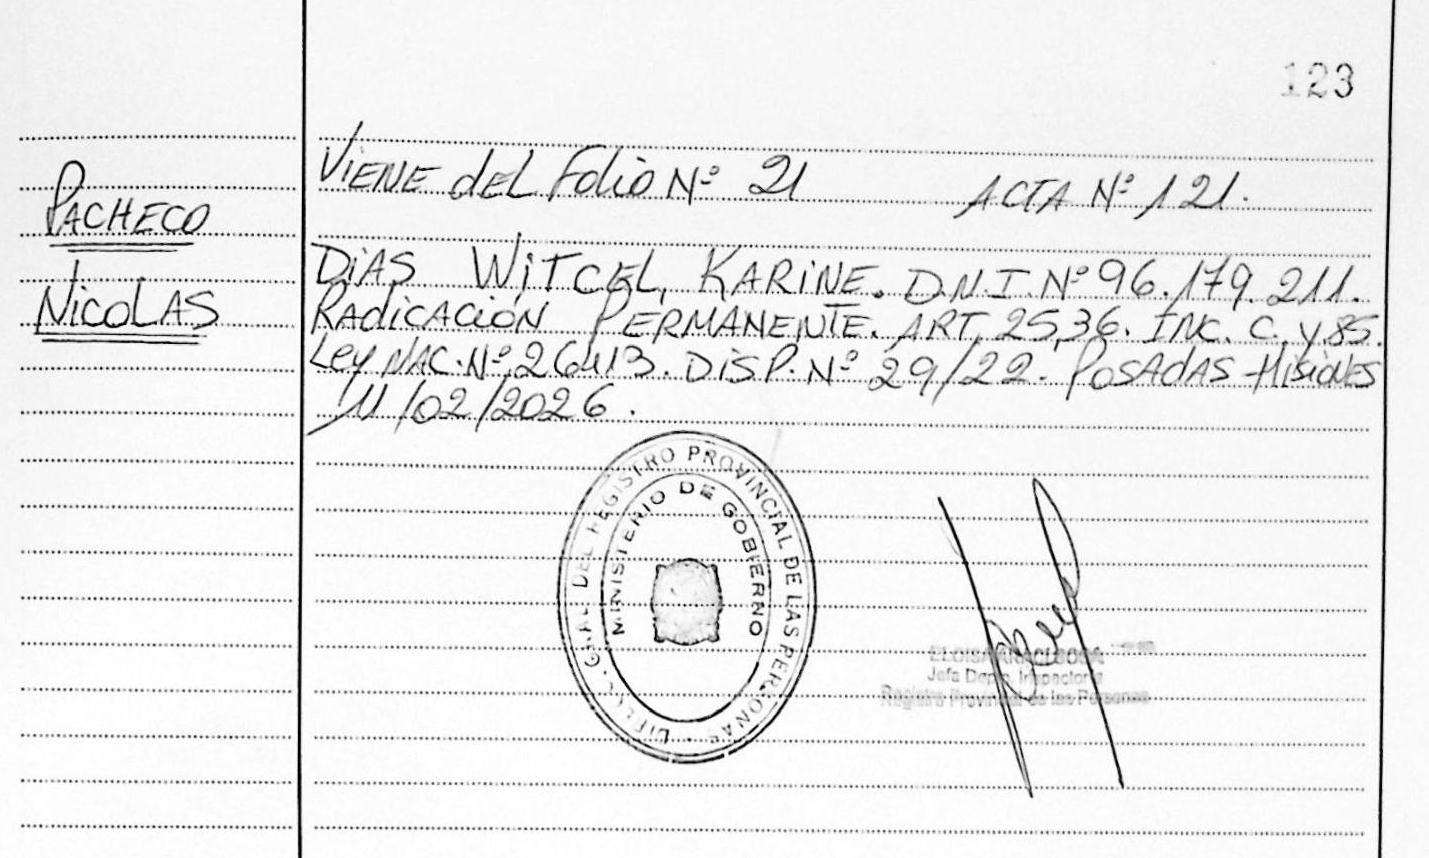 123
PACHECO
NICOLAS
VIENE del Folio Nº 21 ACTA Nº 121.
DIAS WITCEL, KARINE. D.N.I. Nº 96.179.211.
RADICACIÓN PERMANENTE. ART, 25,36. INC. C. y 85.
Ley NAC. Nº 26413. DISP. Nº 29/22. POSADAS-MISIONES
11/02/2026.
DIRECC. GRAL DEL REGISTRO PROVINCIAL DE LAS PERSONAS
MINISTERIO DE GOBIERNO
Jefa Depto. Inspectoria
Registro Provincial de las Personas